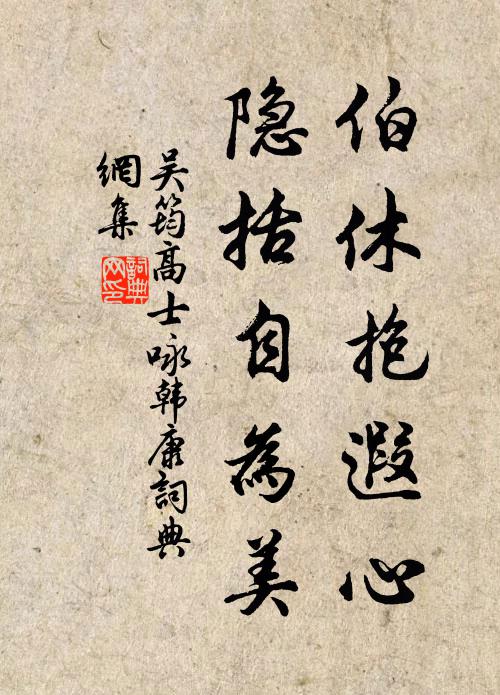 伯休抱遐心
隐括自為美
吴筠高士咏韩康詞典
網集
詞典
网印